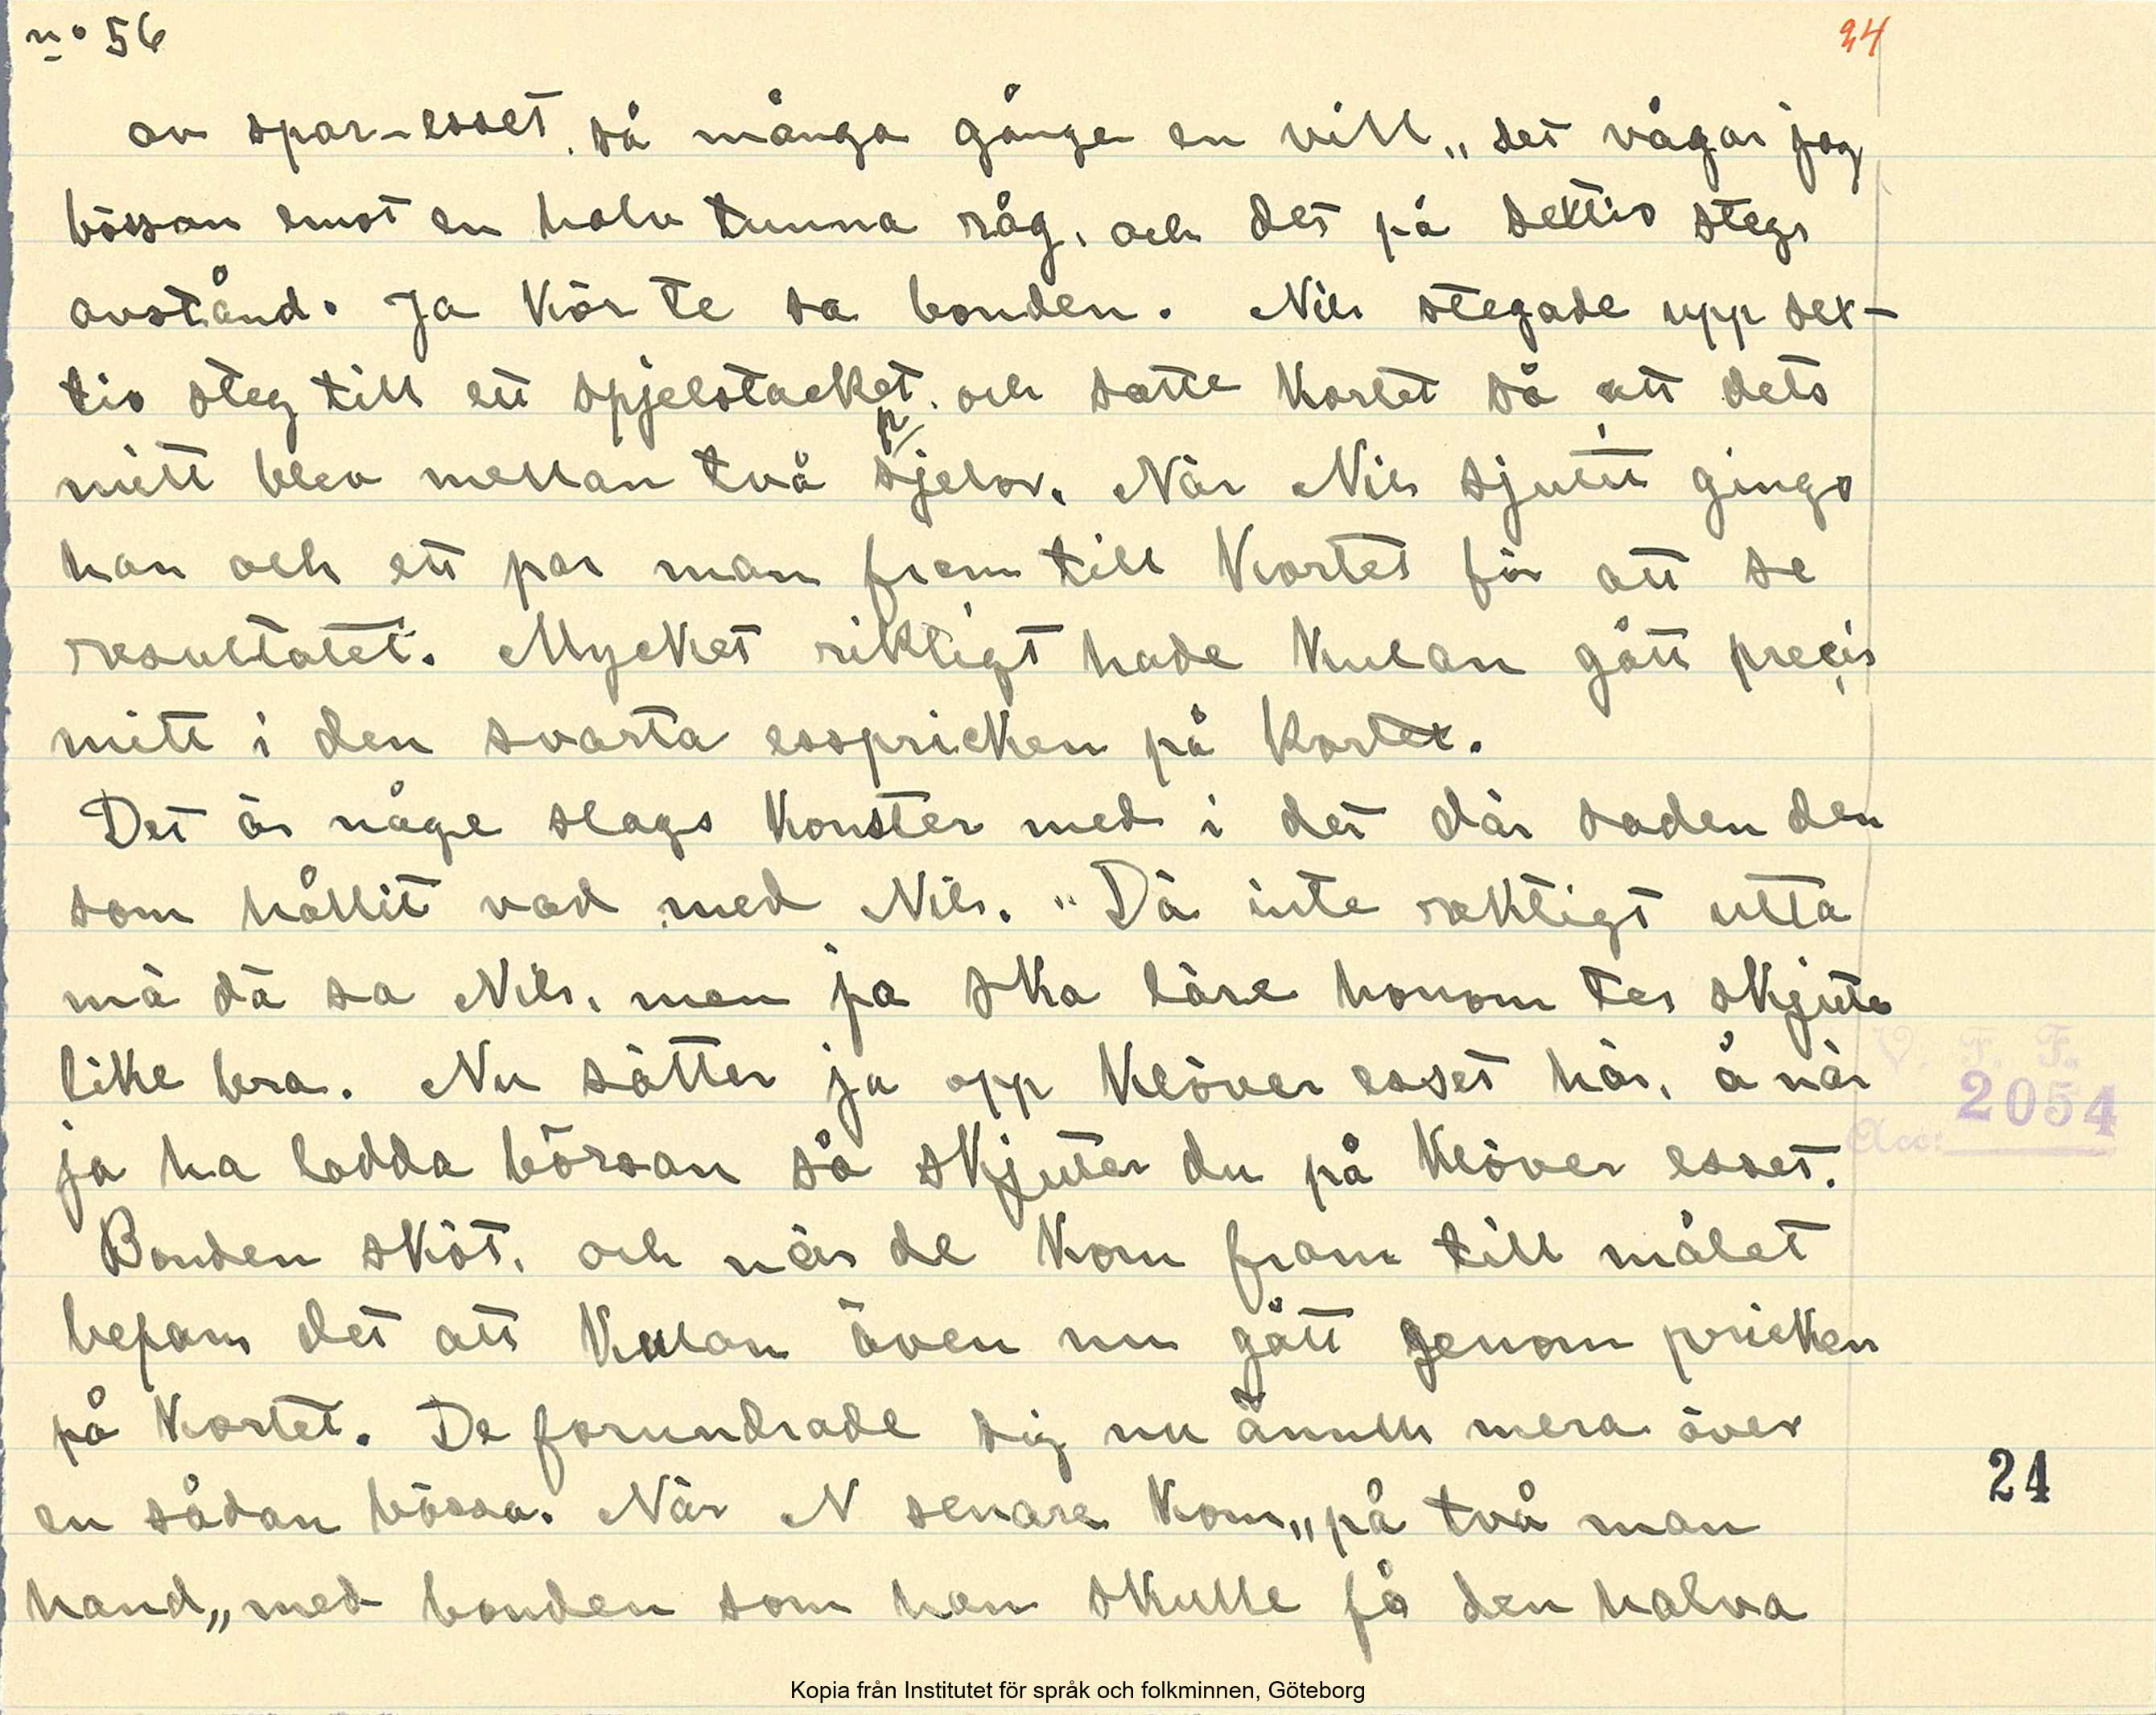 no 56
24
av spar-esset. så många gånger en vill„ det vågar jag
bössan emot en halv tunna råg, och det på sextio stegs
avstånd. Ja kör te sa bonden. Nils stegade upp sex-
tio steg till ett spjelstacket. och satte kortet så att dets
mitt blev mellan två spjelor. När Nils sjutit gingo
han och ett par man fram till kortet för att se
resultatet. Mycket riktigt hade kulan gått precis
mitt i den svarta esspricken på kortet.
Det är någe slags konster med i det där saden den
som hållit vad med Nils. „Dä inte raktigt utta
mä dä sa Nils, men ja ska läre honom te skjuta
like bra. Nu sätter ja opp klöver esset här, å när
ja ha ladda börsan så skjuter du på klöver esset.
Bonden sköt, och när de kom fram till målet
befans det att kulan även nu gått genom pricken
på kortet. De forundrade sig nu ännu mera över
en sådan bössa. När N senare kom„ på två man
hand„ med bonden som han skulle få den halva
V. F. F.
2054
Acc:
24
Kopia från Institutet för språk och folkminnen, Göteborg